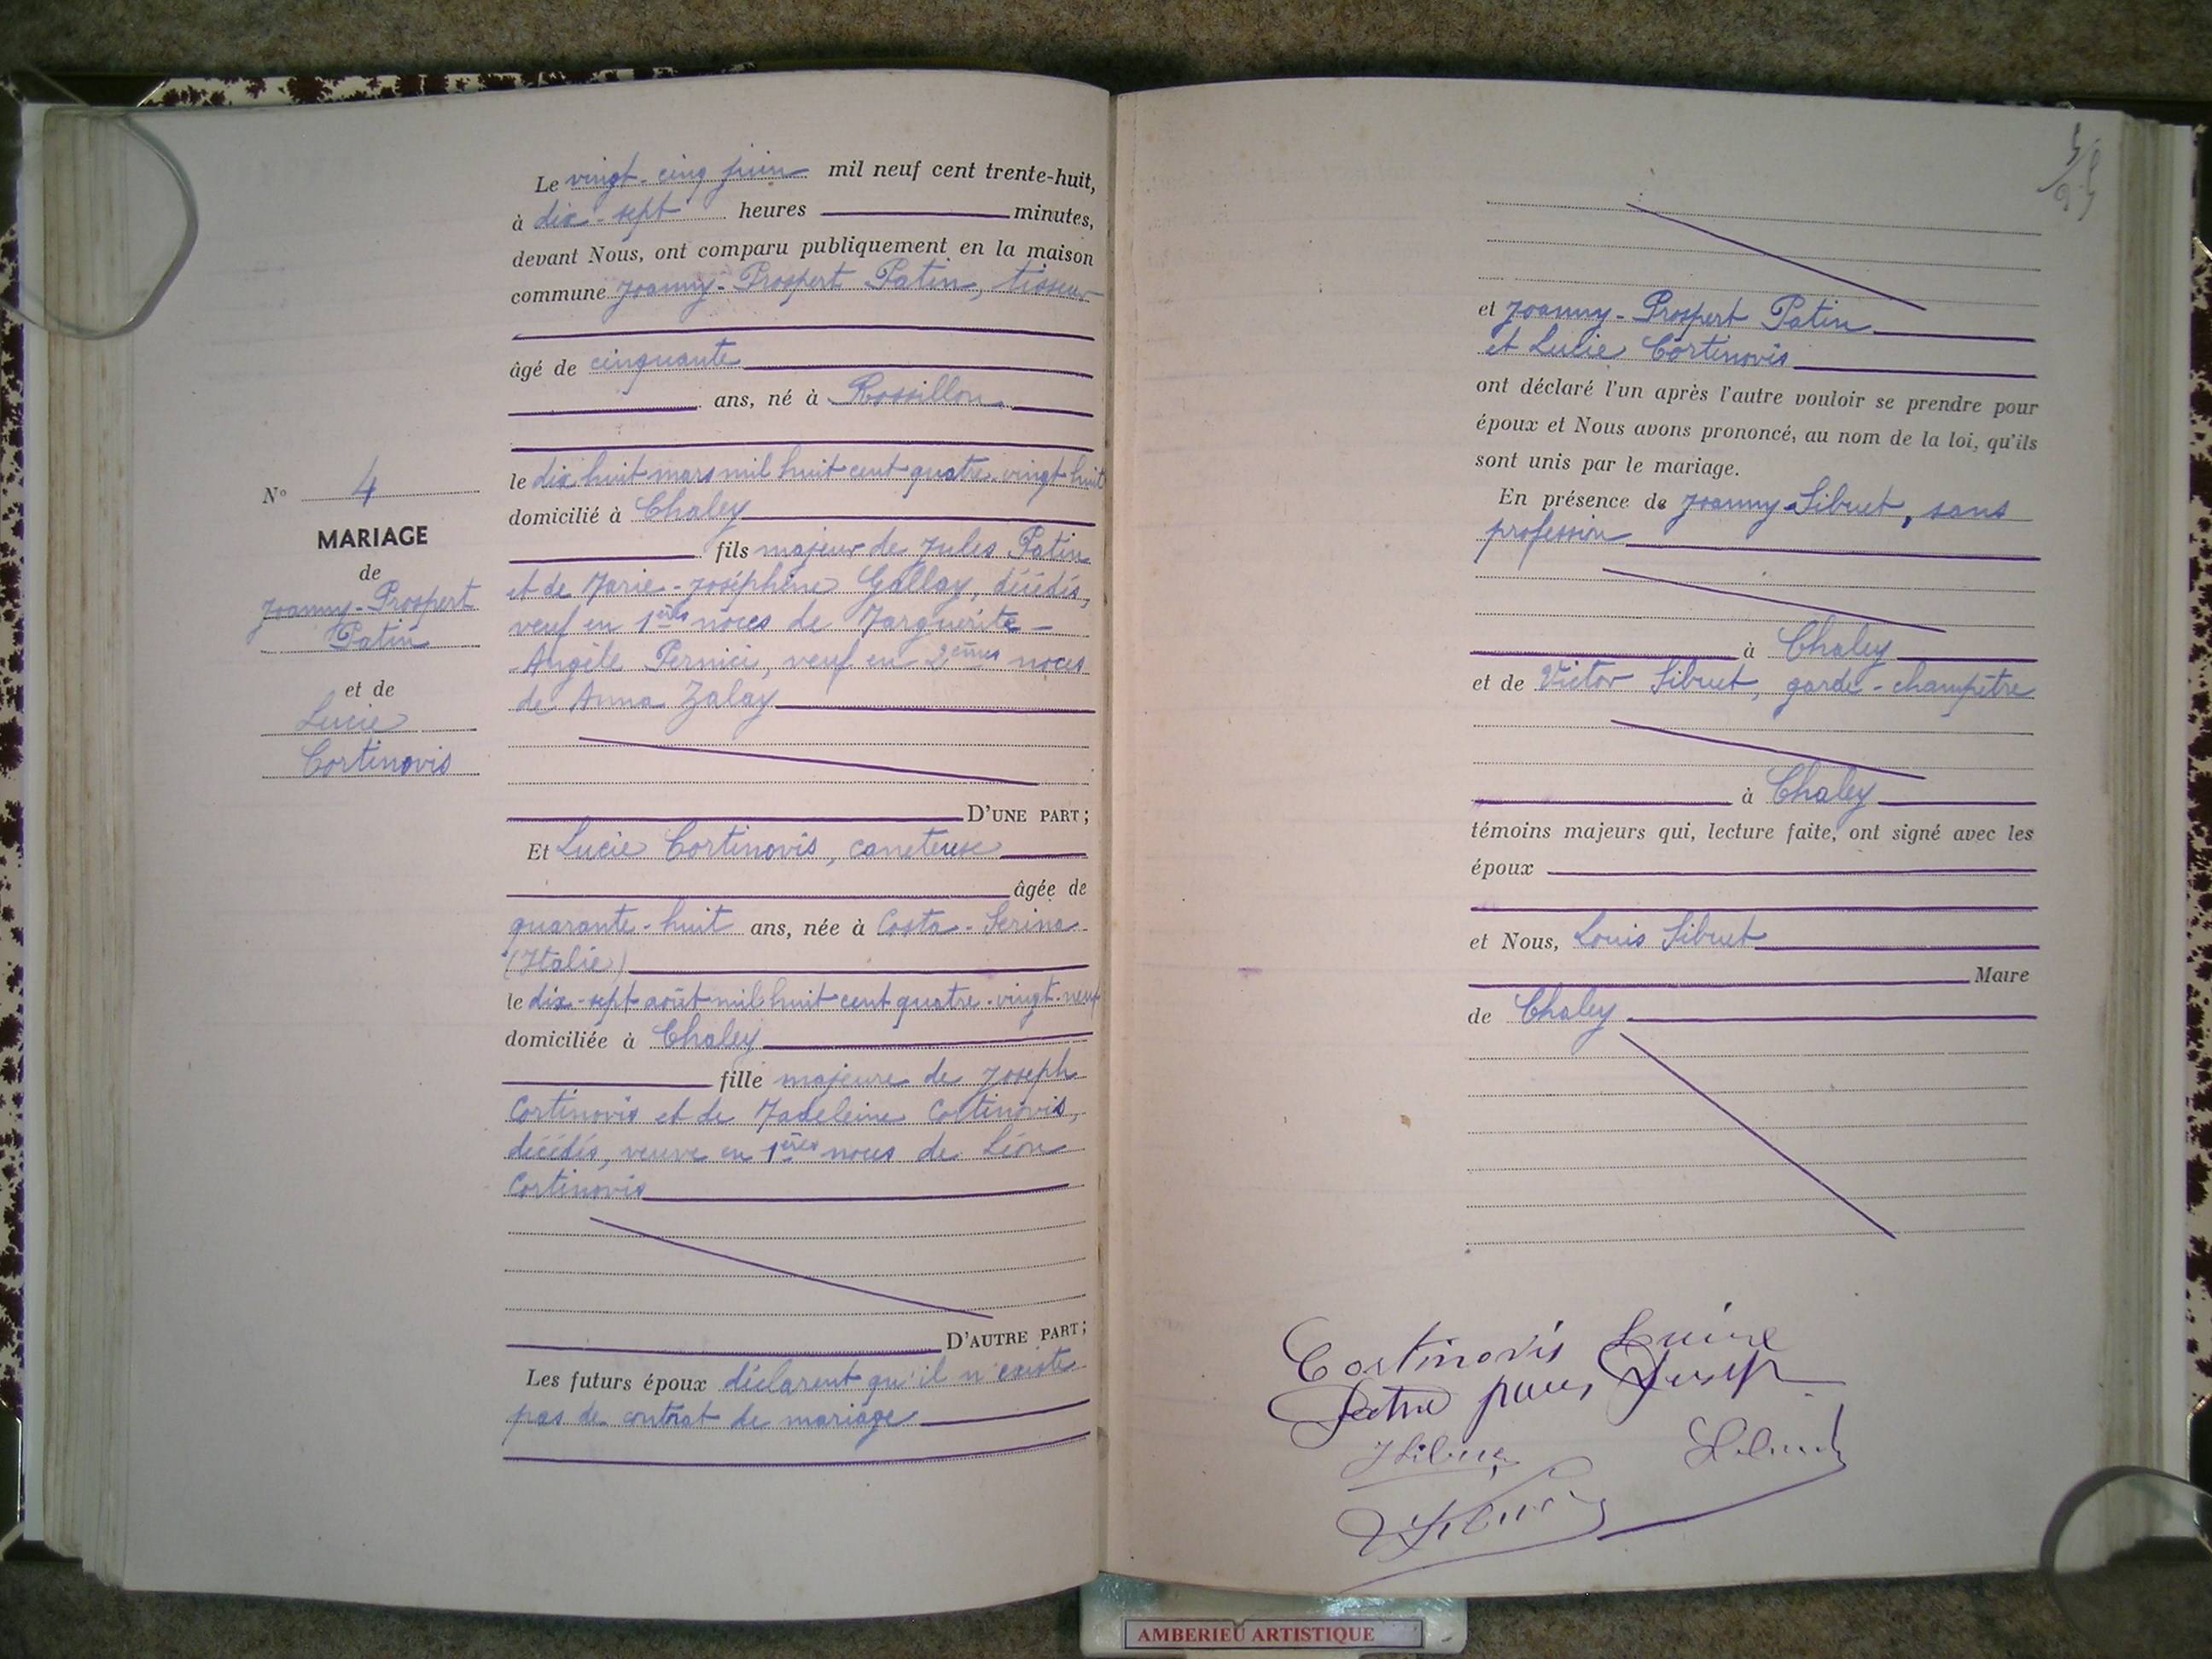 Le vingt-cinq juin mil neuf cent trente-huit,
à dix-sept heures minutes,
devant Nous, ont comparu publiquement en la maison
commune Joanny-Prospert Patin, tisseur
âgé de cinquante
ans, né à Rossillon
le dix huit mars mil huit cent quatre-vingt huit
domicilié à Chaley
fils majeur de Jules Patin
et de Marie-Joséphine Gallay, décédés,
veuf en 1ères noces de Marguerite-
Angèle Pernici, veuf en 2èmes noces
de Anna Zalay
N° 4
MARIAGE
de
Joanny-Prospert
Patin
et de
Lucie
Cortinovis
D'UNE PART;
Et Lucie Cortinovis, caneteuse
âgée de
quarante-huit ans, née à Costa-Serina
(Italie)
le dix-sept août mil huit cent quatre-vingt-neuf
domiciliée à Chaley
fille majeure de Joseph
Cortinovis et de Madeleine Cortinovis,
décédés, veuve en 1ères noces de Léon
Cortinovis
D'AUTRE PART;
Les futurs époux déclarent qu'il n'existe
pas de contrat de mariage
et Joanny-Prospert Patin
et Lucie Cortinovis
ont déclaré l'un après l'autre vouloir se prendre pour
époux et Nous avons prononcé, au nom de la loi, qu'ils
sont unis par le mariage.
En présence de Joanny Sibuet, sans
profession
à Chaley
et de Victor Sibuet, garde-champêtre
à Chaley
témoins majeurs qui, lecture faite, ont signé avec les
époux
et Nous, Louis Sibuet
Maire
de Chaley
Cortinovis Lucie
AMBERIEU ARTISTIQUE